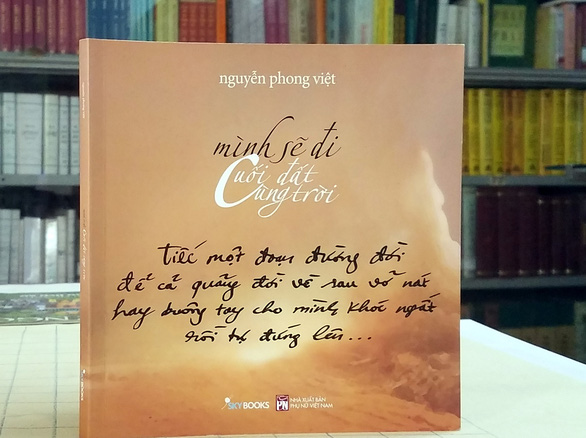 nguyễn phong việt
mình sẽ đi
Cuối đất
Cùng trời
Tiếc một đoạn đường đời
để cả quãng đời về sau vỡ nát
hay buông tay cho mình khóc ngất
rồi tự đứng lên...
SKYBOOKS
NHÀ XUẤT BẢN
PHỤ NỮ VIỆT NAM